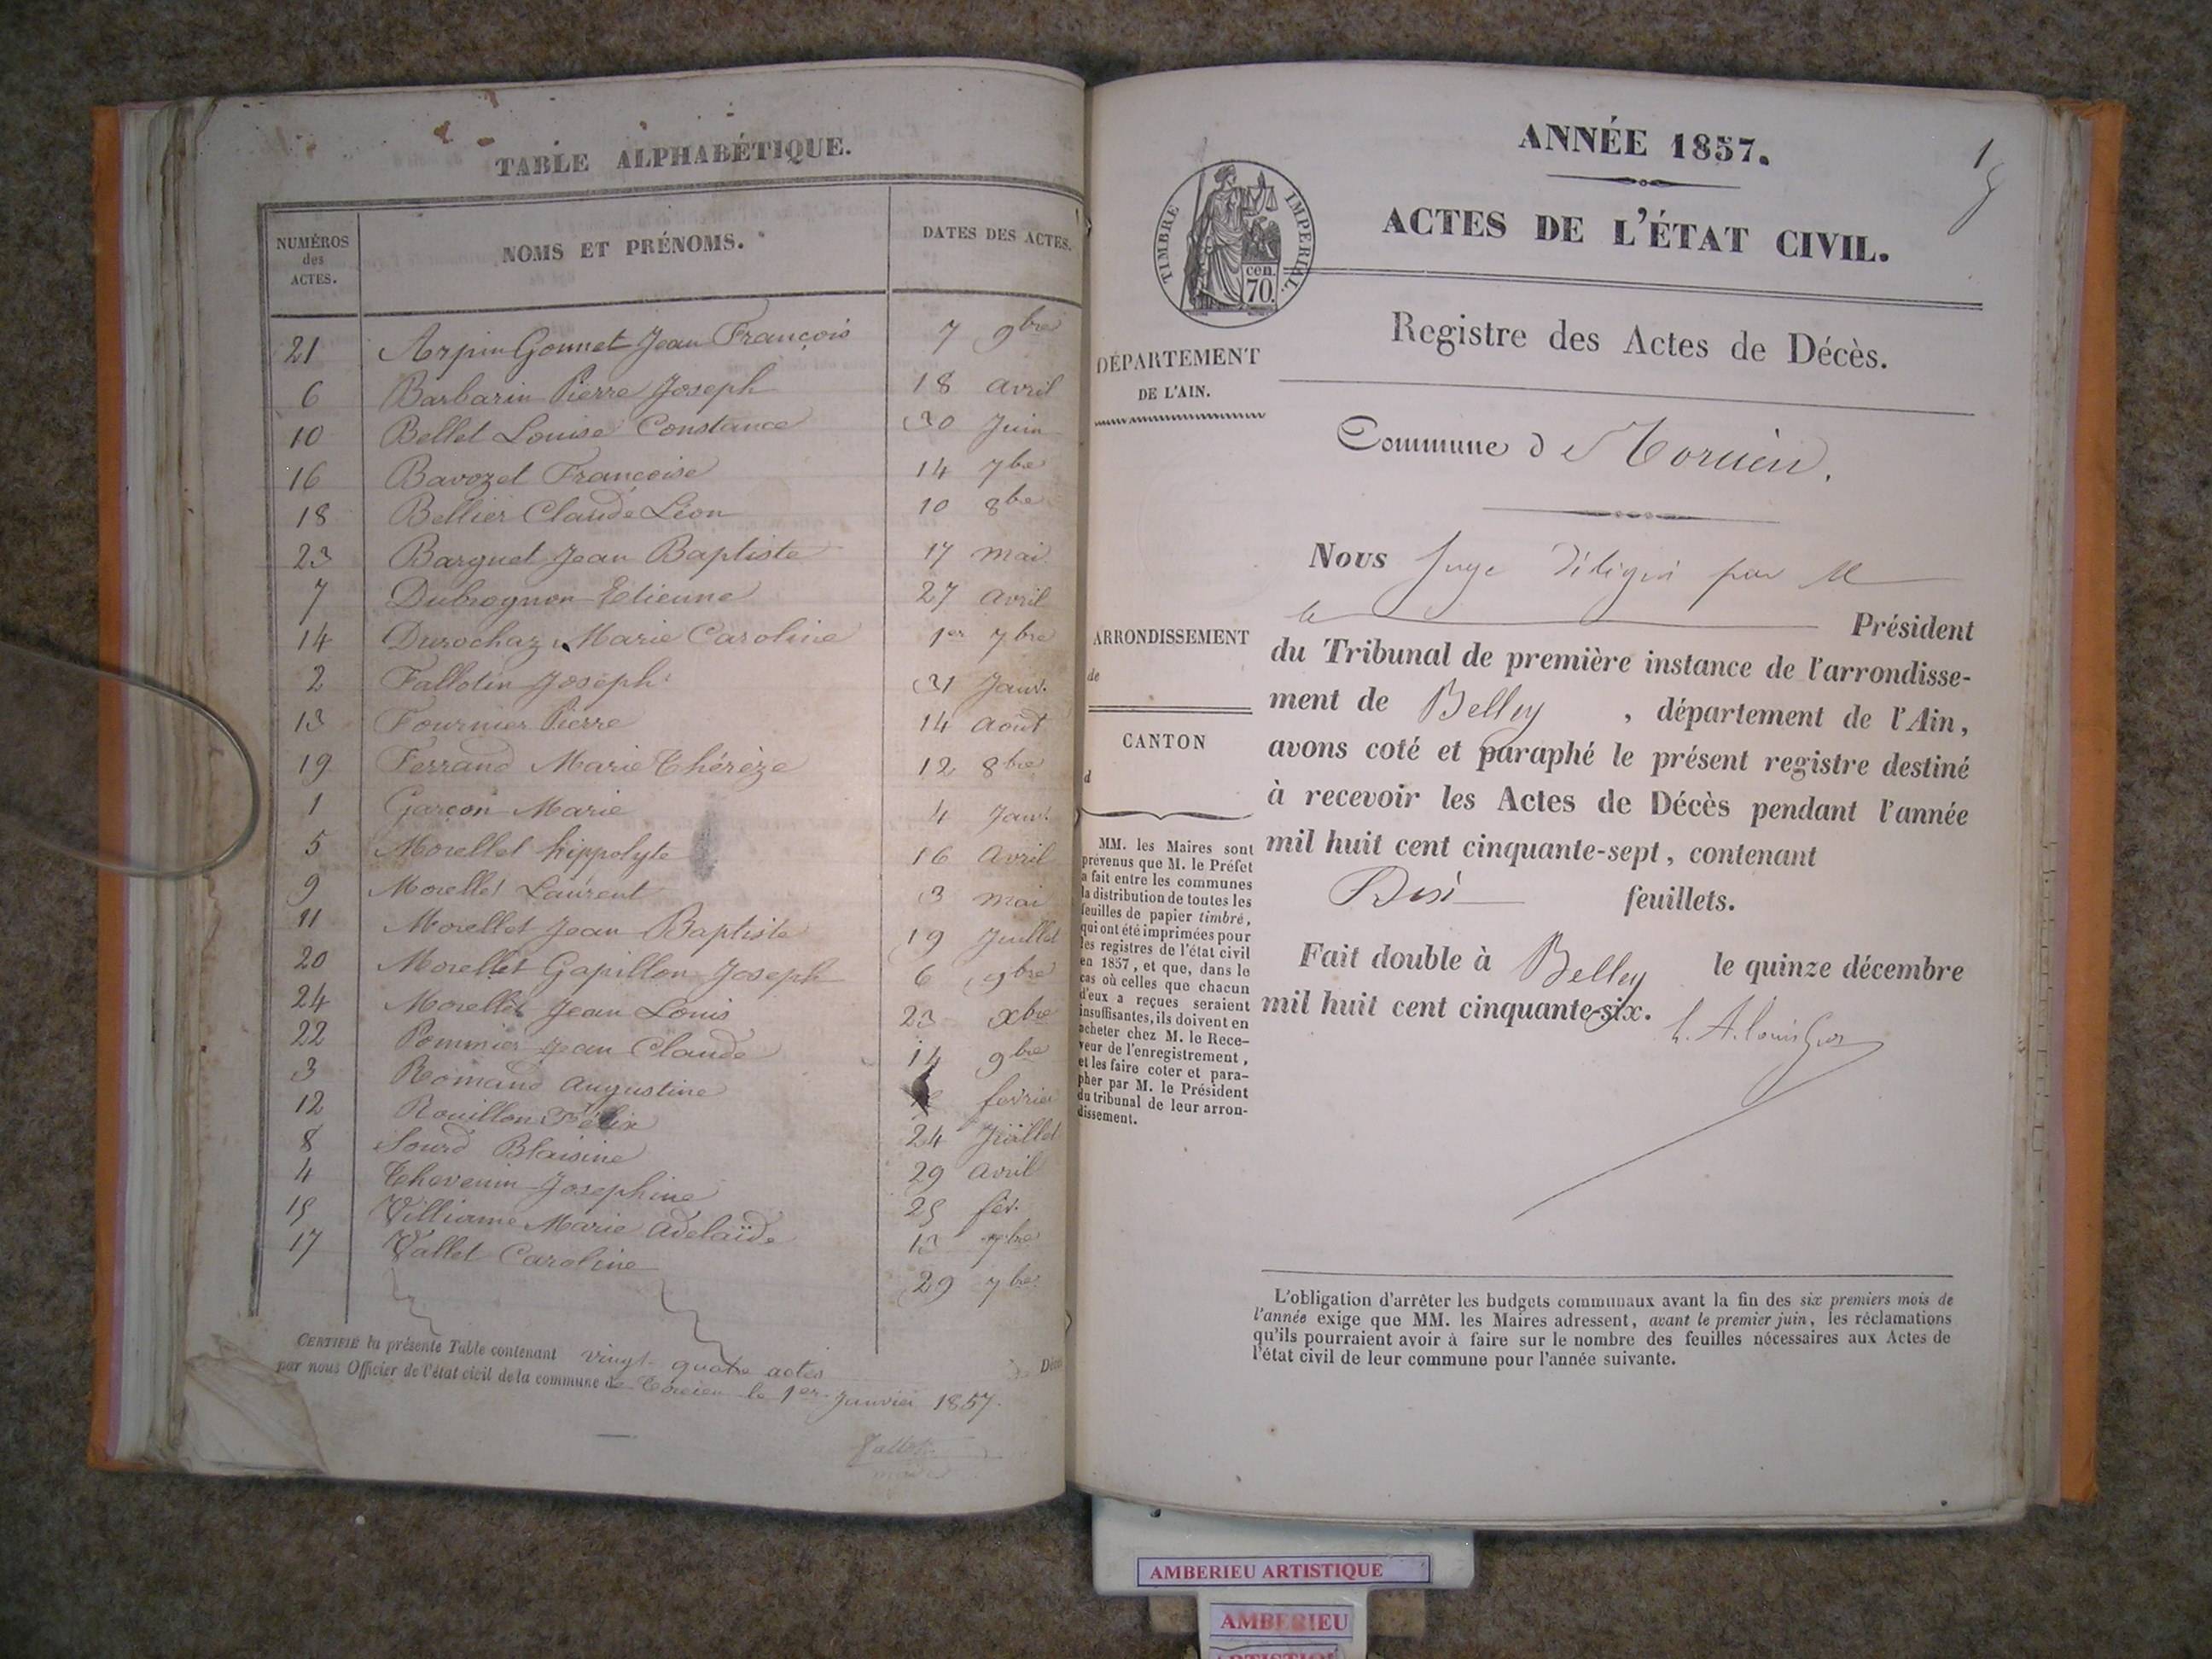 TABLE ALPHABÉTIQUE.
NUMÉROS
des
ACTES.
NOMS ET PRÉNOMS.
DATES DES ACTES.
21 Arpin Gonnet Jean François 7 9bre
6 Barbarin Pierre Joseph 18 avril
10 Bellet Louise Constance 30 Juin
16 Bavozet Francoise 14 7bre
18 Bellier Claude Léon 10 8bre
23 Barguet Jean Baptiste 17 mai
7 Dubrognon Etienne 27 avril
14 Durochaz Marie Caroline 1er 7bre
2 Fallotin Joseph 31 Janv.
13 Fournier Pierre 14 aout
19 Ferrand Marie Thérèze 12 8bre
1 Garçon Marie 4 Janv.
5 Morellet hippolyte 16 avril
9 Morellet Laurent 3 mai
11 Morellet Jean Baptiste 19 Juillet
20 Morellet Gapillon Joseph 6 9bre
24 Morellet Jean Louis 23 xbre
22 Pommier Jean Claude 14 9bre
3 Romand Augustine fevrier
12 Rouillon Félix 24 Juillet
8 Sourd Blaisine 29 avril
4 Thevenin Josephine 25 fév.
15 Villiame Marie Adelaïde 13 7bre
17 Vallet Caroline 29 7bre
CERTIFIÉ la présente Table contenant vingt quatre actes
par nous Officier de l'état civil de la commune de Torcieu le 1er Janvier 1857.
ANNÉE 1857.
1
ACTES DE L'ÉTAT CIVIL.
TIMBRE IMPERIAL.
cen.
70.
Registre des Actes de Décès.
DÉPARTEMENT
DE L'AIN.
Commune de Torcieu.
Nous Juge délégué par M
le Président
ARRONDISSEMENT
de
du Tribunal de première instance de l'arrondisse-
ment de Belley , département de l'Ain,
CANTON
d
avons coté et paraphé le présent registre destiné
à recevoir les Actes de Décès pendant l'année
mil huit cent cinquante-sept, contenant
feuillets.
Fait double à Belley le quinze décembre
mil huit cent cinquante-six.
MM. les Maires sont
prévenus que M. le Préfet
a fait entre les communes
la distribution de toutes les
feuilles de papier timbré,
qui ont été imprimées pour
les registres de l'état civil
en 1857, et que, dans le
cas où celles que chacun
d'eux a reçues seraient
insuffisantes, ils doivent en
acheter chez M. le Rece-
veur de l'enregistrement,
et les faire coter et para-
pher par M. le Président
du tribunal de leur arron-
dissement.
L'obligation d'arrêter les budgets communaux avant la fin des six premiers mois de
l'année exige que MM. les Maires adressent, avant le premier juin, les réclamations
qu'ils pourraient avoir à faire sur le nombre des feuilles nécessaires aux Actes de
l'état civil de leur commune pour l'année suivante.
AMBERIEU ARTISTIQUE
AMBERIEU
ARTISTIQUE